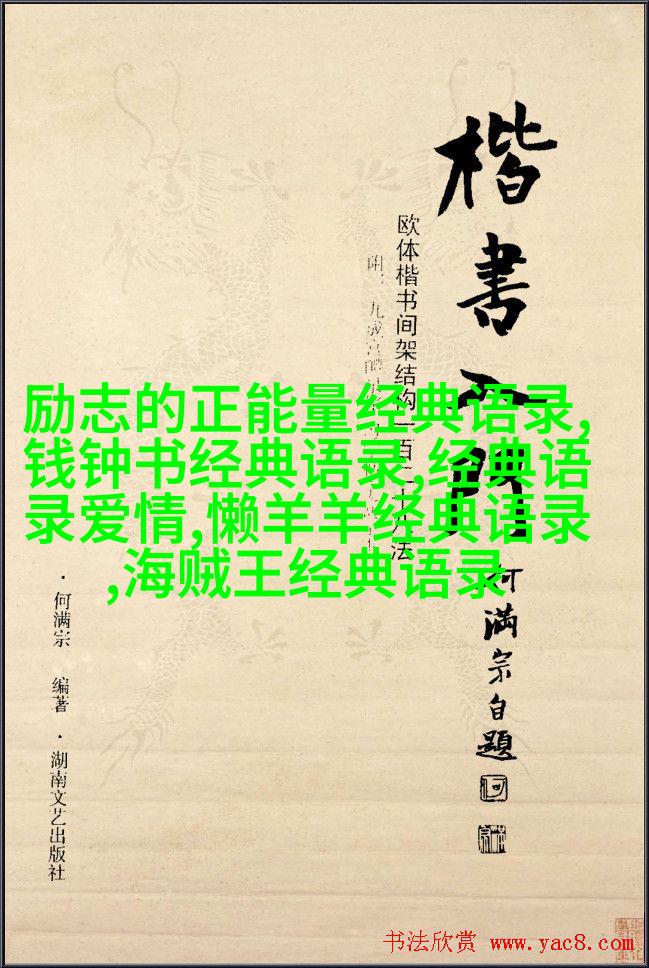 楷書入門
欧体楷书间架结构一百二十八法
何满宗自題
励志的正能量经典语录,
钱钟书经典语录,经典语
录爱情,懒羊羊经典语录
,海贼王经典语录
·何满宗 编著·湖南文艺出版社
书法欣赏 www.yac8.com